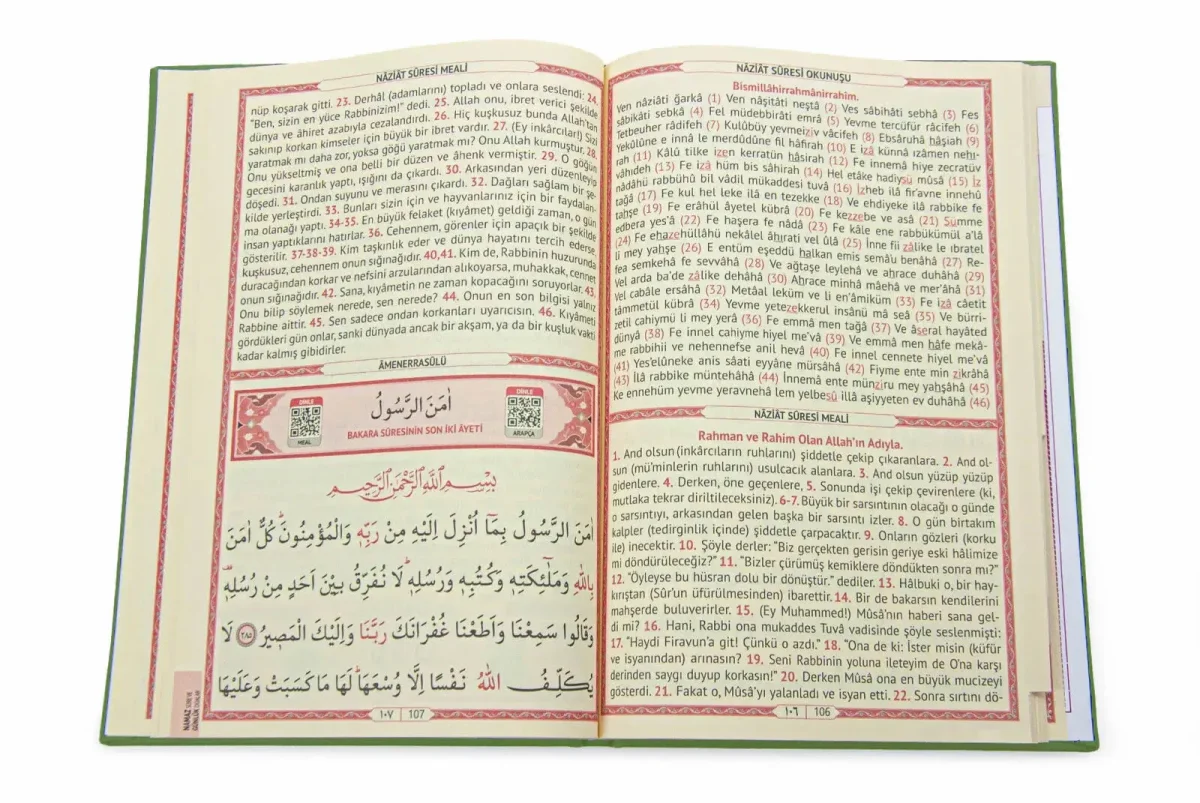 NÂZİÂT SÛRESİ OKUNUŞU
Bismillâhirrahmânirrahîm.
Ven nâziâti ğarkâ (1) Ven nâşitâti neştâ (2) Ves sâbihâti sebhâ (3) Fes
sâbikâti sebkâ (4) Fel müdebbirâti emrâ (5) Yevme tercüfür râcifeh (6)
Tetbeuher râdifeh (7) Kulûbüy yevmeiziv vâcifeh (8) Ebsâruhâ hâşiah (9)
Yekûlûne e innâ le merdûdûne fil hâfirah (10) E izâ künnâ izâmen nehı-
rah (11) Kâlû tilke izen kerratün hâsirah (12) Fe innemâ hiye zecratüv
vâhıdeh (13) Fe izâ hüm bis sâhirah (14) Hel etâke hadîysü mûsâ (15) İz
nâdâhü rabbühû bil vâdil mükaddesi tuvâ (16) İzheb ilâ fir'avne innehû
tağâ (17) Fe kul hel leke ilâ en tezekke (18) Ve ehdiyeke ilâ rabbike fe
tahşe (19) Fe erâhül âyetel kübrâ (20) Fe kezzebe ve asâ (21) Sümme
edbera yes'â (22) Fe haşera fe nâdâ (23) Fe kâle ene rabbükümül a'lâ
(24) Fe ehazehüllâhü nekâlel âhırati vel ûlâ (25) İnne fîi zâlike le ıbratel
li mey yahşe (26) E entüm eşeddü halkan emis semâ'u benâhâ (27) Re-
fea semkehâ fe sevvâhâ (28) Ve ağtaşe leylehâ ve ahrace duhâhâ (29)
Vel arda ba'de zâlike dehâhâ (30) Ahrace minhâ mâehâ ve mer'âhâ (31)
Vel cabâle ersâhâ (32) Metâal leküm ve li en'âmiküm (33) Fe izâ câetit
tâmmetül kübrâ (34) Yevme yetezekkerul insânü mâ seâ (35) Ve bürri-
zetil cahiymü li mey yerâ (36) Fe emmâ men tağâ (37) Ve âseral hayâted
dünyâ (38) Fe innel cahiyme hiyel me'vâ (39) Ve emmâ men hâfe mekâ-
me rabbihii ve nehennefse anil hevâ (40) Fe innel cennete hiyel me'vâ
(41) Yes'elûneke anis sâati eyyâne mürsâhâ (42) Fiyme ente min zikrâhâ
(43) İlâ rabbike müntehâhâ (44) İnnemâ ente münziru mey yahşâhâ (45)
Ke ennehüm yevme yeravnehâ lem yelbesû illâ aşiyyeten ev duhâhâ (46)
NÂZİÂT SÛRESİ MEALİ
Rahman ve Rahim Olan Allah'ın Adıyla.
1. And olsun (inkârcıların ruhlarını) şiddetle çekip çıkaranlara. 2. And ol-
sun (mü'minlerin ruhlarını) usulcacık alanlara. 3. And olsun yüzüp yüzüp
gidenlere. 4. Derken, öne geçenlere, 5. Sonunda işi çekip çevirenlere (ki,
mutlaka tekrar diriltileceksiniz). 6-7. Büyük bir sarsıntının olacağı o günde
o sarsıntıyı, arkasından gelen başka bir sarsıntı izler. 8. O gün birtakım
kalpler (tedirginlik içinde) şiddetle çarpacaktır. 9. Onların gözleri (korku
ile) inecektir. 10. Şöyle derler: "Biz gerçekten gerisin geriye eski hâlimize
mi döndürüleceğiz?" 11. "Bizler çürümüş kemiklere döndükten sonra mı?"
12. "Öyleyse bu hüsran dolu bir dönüştür." dediler. 13. Hâlbuki o, bir hay-
kırıştan (Sûr'un üfürülmesinden) ibarettir. 14. Bir de bakarsın kendilerini
mahşerde buluverirler. 15. (Ey Muhammed!) Mûsâ'nın haberi sana gel-
di mi? 16. Hani, Rabbi ona mukaddes Tuvâ vadisinde şöyle seslenmişti:
17. "Haydi Firavun'a git! Çünkü o azdı." 18. "Ona de ki: İster misin (küfür
ve isyanından) arınasın? 19. Seni Rabbinin yoluna ileteyim de O'na karşı
derinden saygı duyup korkasın!" 20. Derken Mûsâ ona en büyük mucizeyi
gösterdi. 21. Fakat o, Mûsâ'yı yalanladı ve isyan etti. 22. Sonra sırtını dö-
١٠٦ 106
NÂZİÂT SÛRESİ MEALİ
nüp koşarak gitti. 23. Derhâl (adamlarını) topladı ve onlara seslendi: 24.
"Ben, sizin en yüce Rabbinizim!" dedi. 25. Allah onu, ibret verici şekilde
dünya ve âhiret azabıyla cezalandırdı. 26. Hiç kuşkusuz bunda Allah'tan
sakınıp korkan kimseler için büyük bir ibret vardır. 27. (Ey inkârcılar!) Sizi
yaratmak mı daha zor, yoksa göğü yaratmak mı? Onu Allah kurmuştur. 28.
Onu yükseltmiş ve ona belli bir düzen ve âhenk vermiştir. 29. O göğün
gecesini karanlık yaptı, ışığını da çıkardı. 30. Arkasından yeri düzenleyip
döşedi. 31. Ondan suyunu ve merasını çıkardı. 32. Dağları sağlam bir şe-
kilde yerleştirdi. 33. Bunları sizin için ve hayvanlarınız için bir faydalan-
ma olanağı yaptı. 34-35. En büyük felaket (kıyâmet) geldiği zaman, o gün
insan yaptıklarını hatırlar. 36. Cehennem, görenler için apaçık bir şekilde
gösterilir. 37-38-39. Kim taşkınlık eder ve dünya hayatını tercih ederse
kuşkusuz, cehennem onun sığınağıdır. 40,41. Kim de, Rabbinin huzurunda
duracağından korkar ve nefsini arzularından alıkoyarsa, muhakkak, cennet
onun sığınağıdır. 42. Sana, kıyâmetin ne zaman kopacağını soruyorlar. 43.
Onu bilip söylemek nerede, sen nerede? 44. Onun en son bilgisi yalnız
Rabbine aittir. 45. Sen sadece ondan korkanları uyarıcısın. 46. Kıyâmeti
gördükleri gün onlar, sanki dünyada ancak bir akşam, ya da bir kuşluk vakti
kadar kalmış gibidirler.
ÂMENERRASÛLÜ
DİNLE
MEAL
اٰمَنَ الرَّسُولُ
BAKARA SÛRESİNİN SON İKİ ÂYETİ
DİNLE
ARAPÇA
بِسْمِ اللّٰهِ الرَّحْمٰنِ الرَّحِيمِ
اٰمَنَ الرَّسُولُ بِمَٓا اُنْزِلَ اِلَيْهِ مِنْ رَبِّهٖ وَالْمُؤْمِنُونَۜ كُلٌّ اٰمَنَ
بِاللّٰهِ وَمَلٰٓئِكَتِهٖ وَكُتُبِهٖ وَرُسُلِهٖۜ لَا نُفَرِّقُ بَيْنَ اَحَدٍ مِنْ رُسُلِهٖۜ
وَقَالُوا سَمِعْنَا وَاَطَعْنَا غُفْرَانَكَ رَبَّنَا وَاِلَيْكَ الْمَصٖيرُ ﴿٢٨٥﴾ لَا
يُكَلِّفُ اللّٰهُ نَفْسًا اِلَّا وُسْعَهَاۜ لَهَا مَا كَسَبَتْ وَعَلَيْهَا
١٠٧ 107
NAMAZ SÛRE VE
GÜNLÜK DUALAR